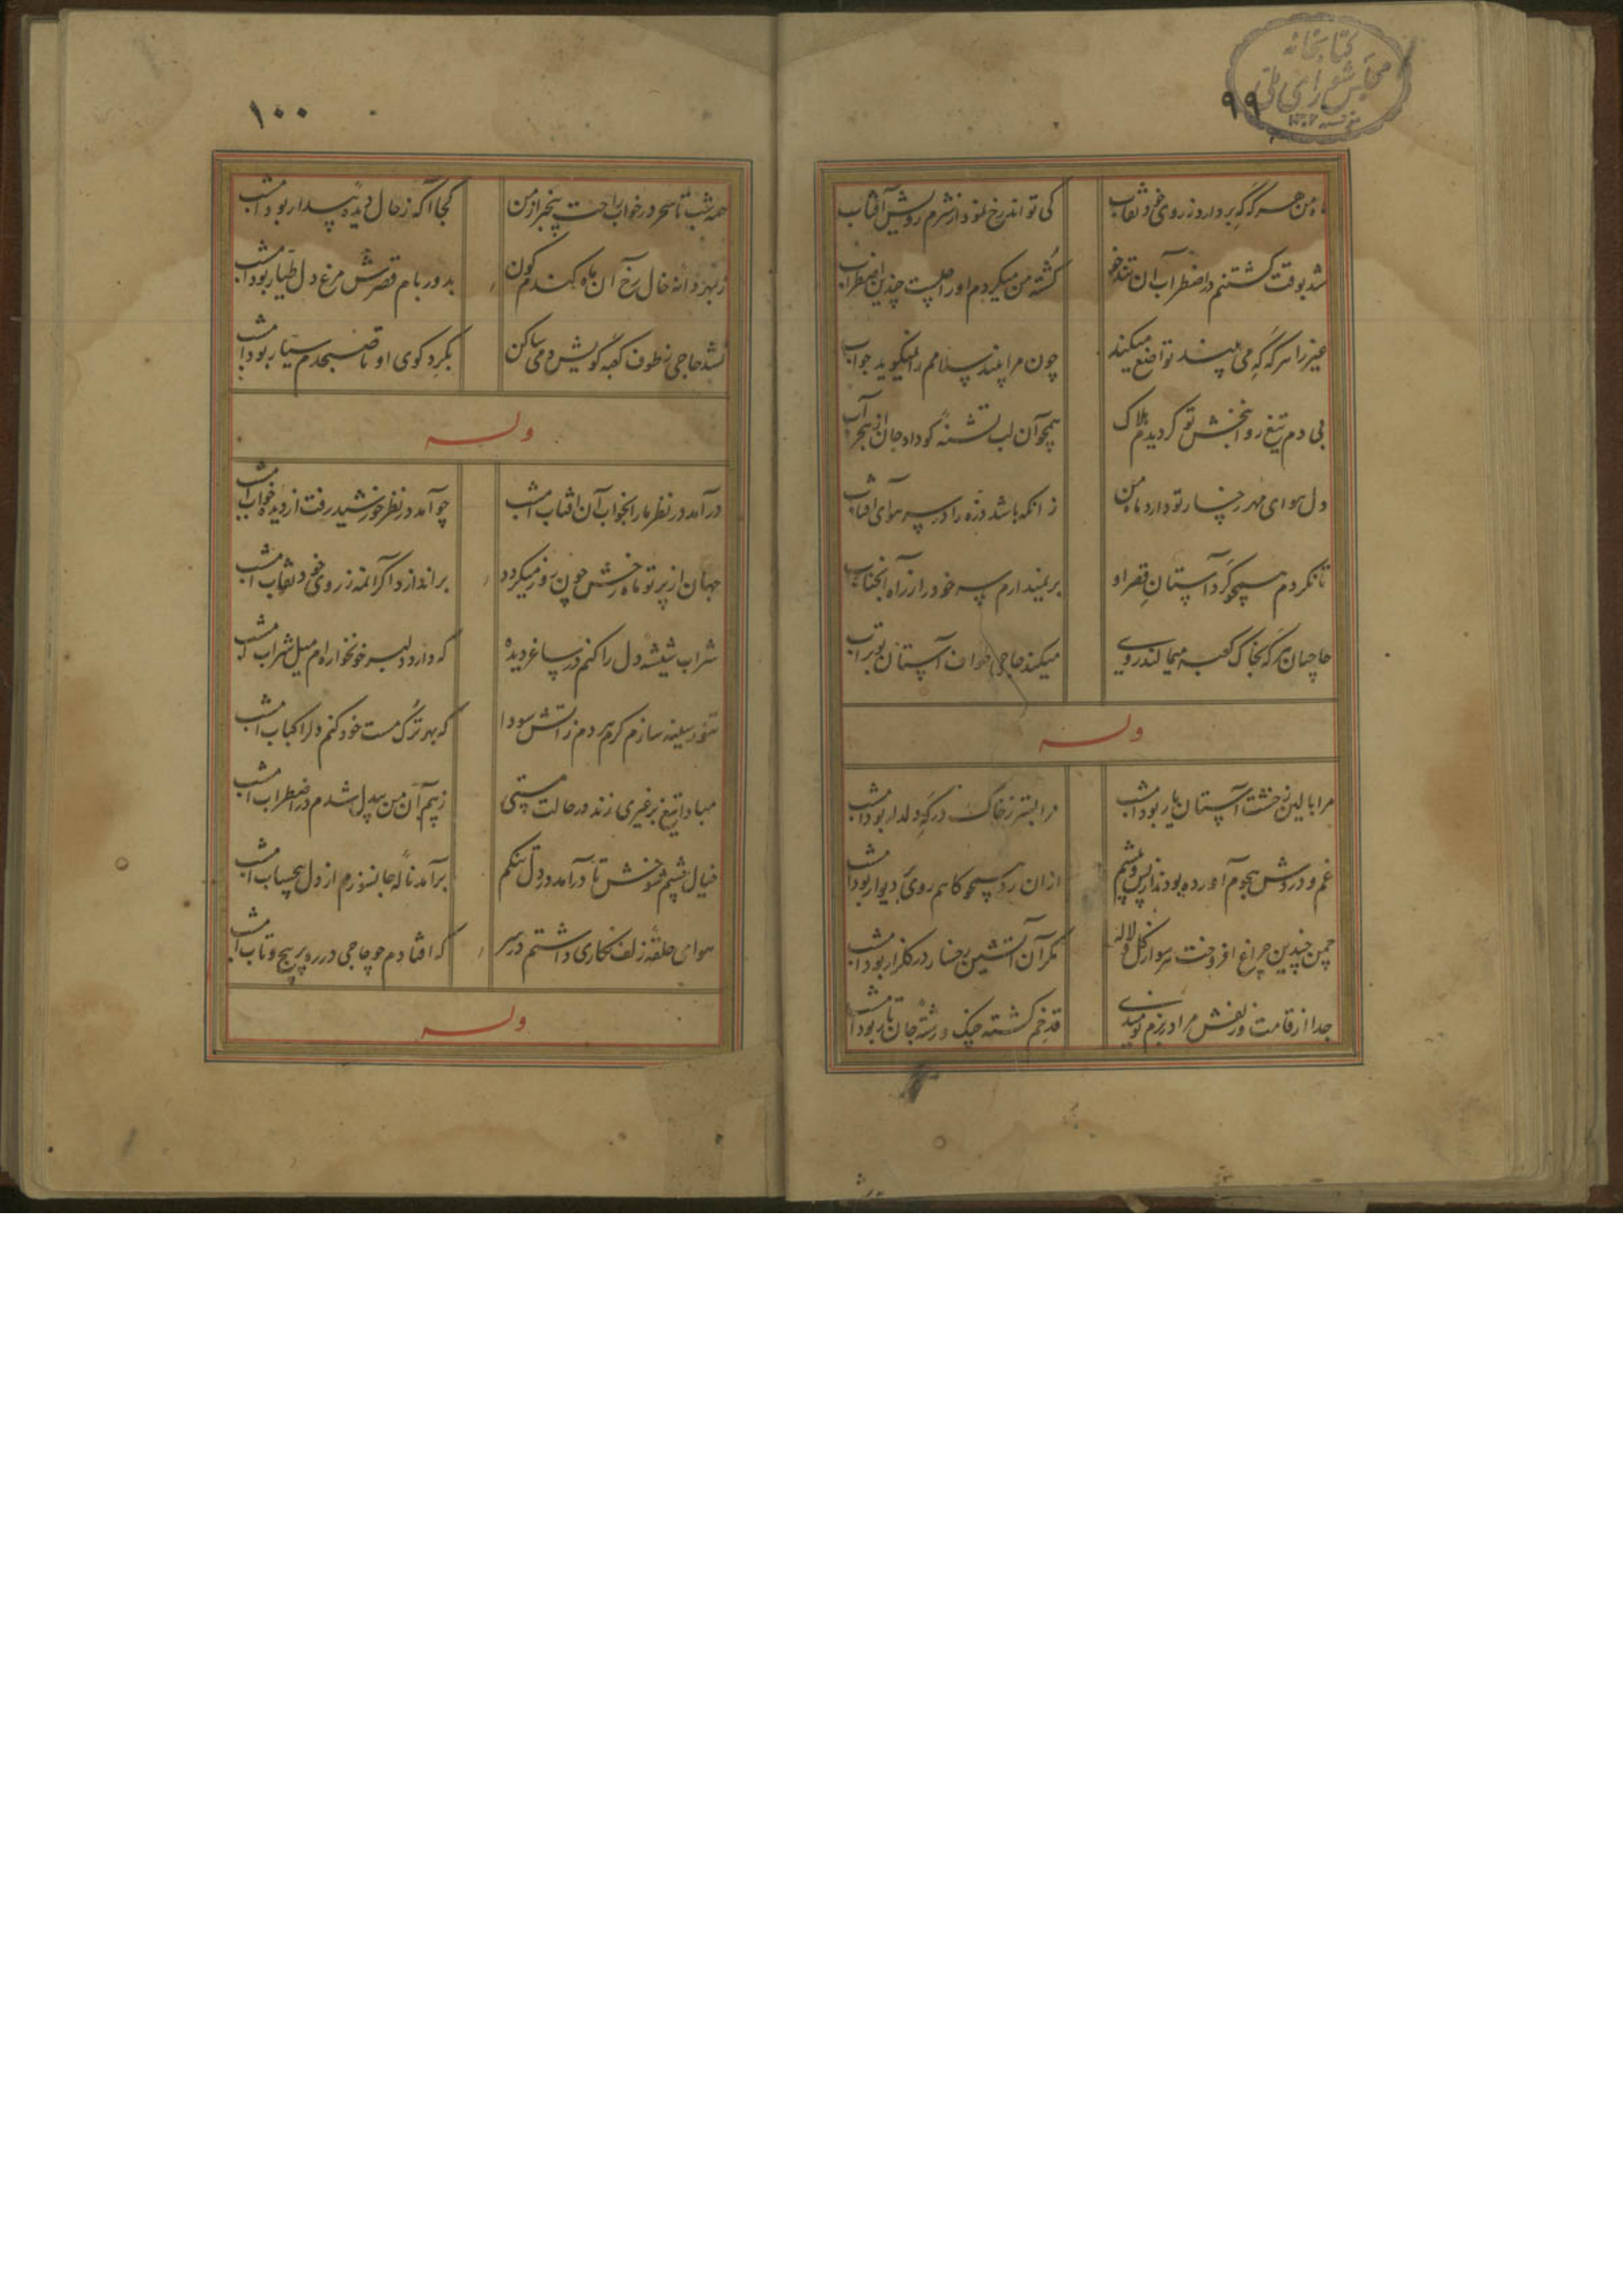 کتابخانه
مجلس شورای ملی
۹۹
ماه من هر گه که بردارد ز روی خود نقاب کی تواند رخ نمود از شرم رویش آفتاب
شد بوقت کشتنم در اضطراب آن تندخو کشته من میکردم او را چندین اضطراب
غیر را هر گه که می بیند تواضع میکند چون مرا بیند سلامم را نمیگوید جواب
بی دم تیغ روانبخش تو گردیدم هلاک همچو آن لب تشنه کو داد جان از هجر آب
دل هوای مهر رخسار تو دارد ماه من زانکه باشد ذره را در سر هوای آفتاب
تا نکردم همچو گرد آستان قصر او بر نمیدارم سر خود را از راه آنجناب
حاجیان گر که بخاک کعبه میمالند روی میکند حاجی طواف آستان بوتراب
وله
مرا بالین ز خشت آستان یار بود امشب مرا بستر ز خاک درگه دلدار بود امشب
غم و دردش هجوم آورده بودند از پس و پیشم ازان رو همچو کاهم روی بر دیوار بود امشب
چمن چندین چراغ افروخت هر سو از گل و لاله مگر آن آتشین رخسار در گلزار بود امشب
جدا از قامت و زلفش مرا در بزم نومیدی قد خم گشته چنگ و رشته جان تار بود امشب
۱۰۰
همه شب تا سحر در خواب راحت بیخبر از من کجا آگه ز حال دیده بیدار بود امشب
ز بهر دانه خال رخ آن ماه گندم گون بدور بام قصرش مرغ دل طیار بود امشب
نشد حاجی ز طوف کعبه کویش دمی ساکن بگرد کوی او تا صبحدم سیار بود امشب
وله
در آمد در نظر ما را بخواب آن آفتاب امشب چو آمد در نظر خورشید رفت از دیده خواب امشب
جهان از پرتو ماه رخش چون روز میگردد براندازد اگر آنمه ز روی خود نقاب امشب
شراب شیشه دل را کنم در ساغر دیده که دارد دلبر خونخواره ام میل شراب امشب
تنور سینه سازم گرم هر دم ز آتش سودا که بهر ترک مست خود کنم دل را کباب امشب
مبادا تیغ بر غیری زند در حالت مستی ز بیم آن من بیدل شدم در اضطراب امشب
خیال چشم شوخش تا در آمد در دل تنگم برآمد ناله جانسوزم از دل بیحساب امشب
هوای حلقه زلف نگاری داشتم در سر که افتادم چو حاجی در ره پر پیچ و تاب امشب
وله